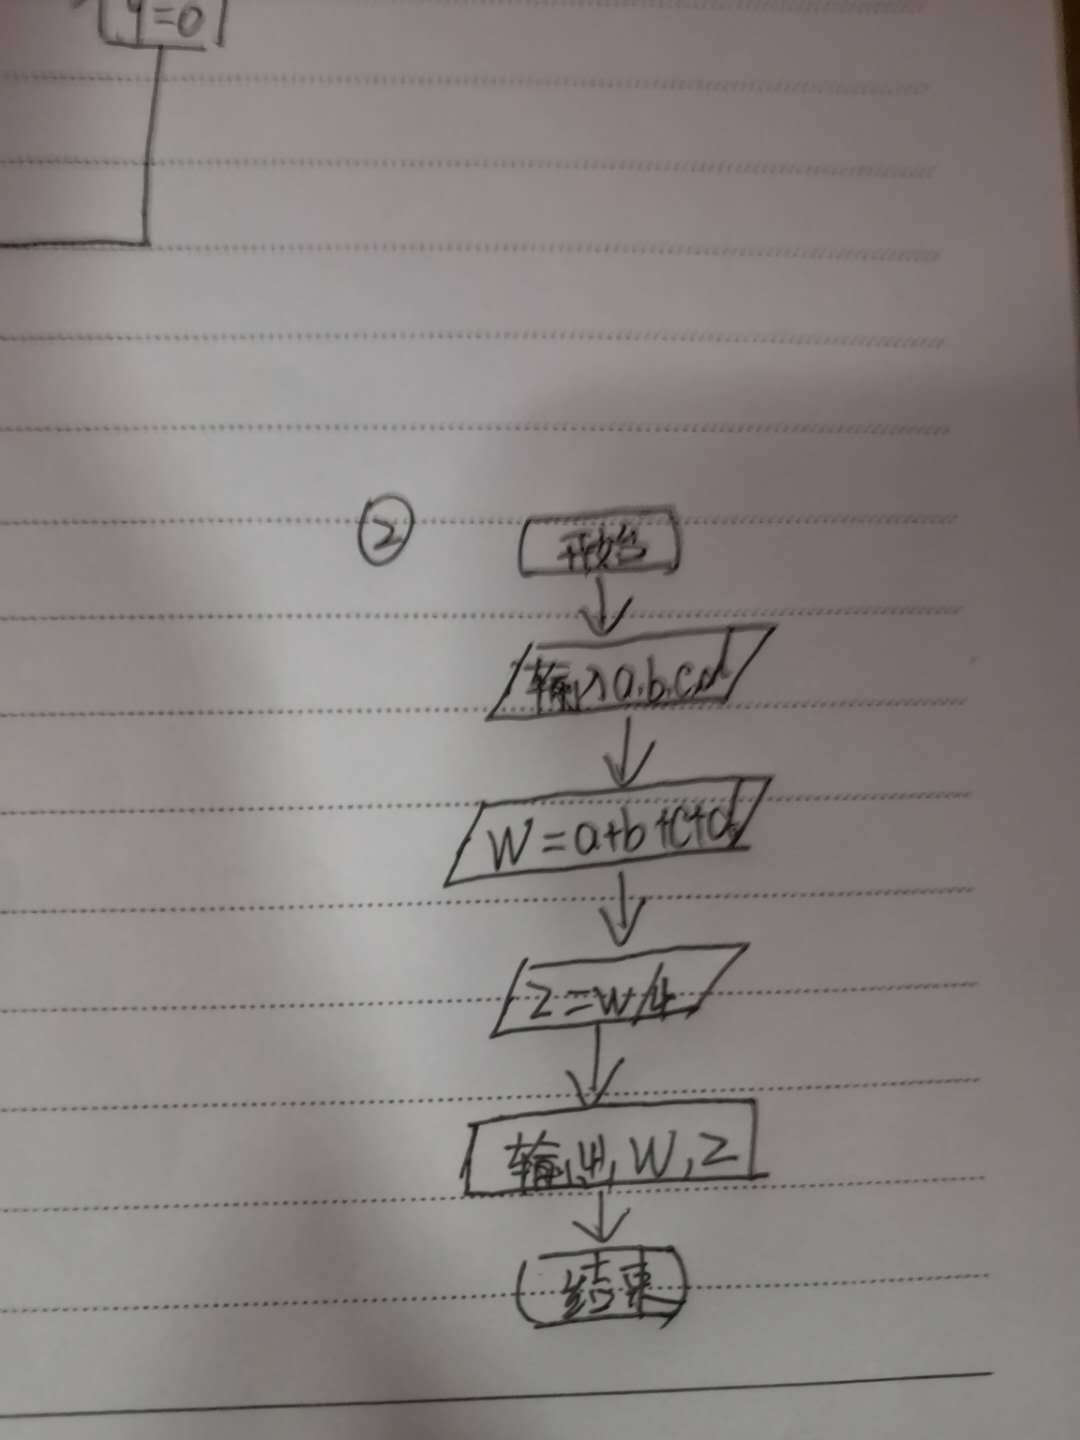 y=0
②
开始
输入a.b.c.d
W=a+b+c+d
Z=W/4
输出,W,Z
结束